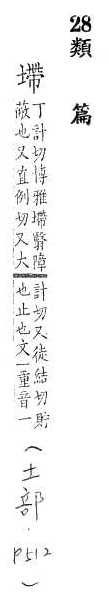 28類 篇
墆
丁計切博雅墆翳障
蔽也又直例切又大
計切又徒結切貯
也止也文一重音一
（土部．P512）